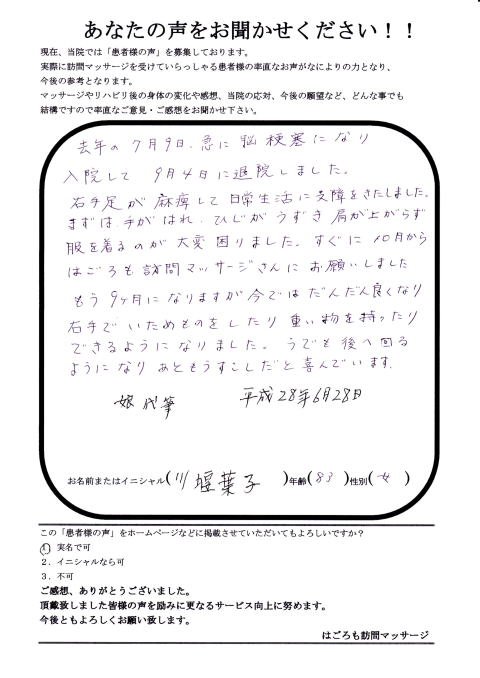 あなたの声をお聞かせください！！
現在、当院では「患者様の声」を募集しております。
実際に訪問マッサージを受けていらっしゃる患者様の率直なお声がなによりの力となり、
今後の参考となります。
マッサージやリハビリ後の身体の変化や感想、当院の応対、今後の願望など、どんな事でも
結構ですので率直なご意見・ご感想をお聞かせ下さい。
去年の7月9日、急に脳梗塞になり
入院して 9月4日に退院しました。
右手足が麻痺して日常生活に支障をきたしました。
まずは、手がはれ、ひじがうずき肩が上がらず
服を着るのが大変困りました。すぐに10月から
はごろも訪問マッサージさんにお願いしました
もう9ヶ月になりますが今ではだんだん良くなり
右手でいためものをしたり重い物を持ったり
できるようになりました。うでも後へ回る
ようになりあともうすこしだと喜んでいます。
娘代筆 平成28年6月28日
お名前またはイニシャル(川堰葉子 )年齢(83 )性別(女 )
この「患者様の声」をホームページなどに掲載させていただいてもよろしいですか？
1．実名で可
2．イニシャルなら可
3．不可
ご感想、ありがとうございました。
頂戴致しました皆様の声を励みに更なるサービス向上に努めます。
今後ともよろしくお願い致します。
はごろも訪問マッサージ